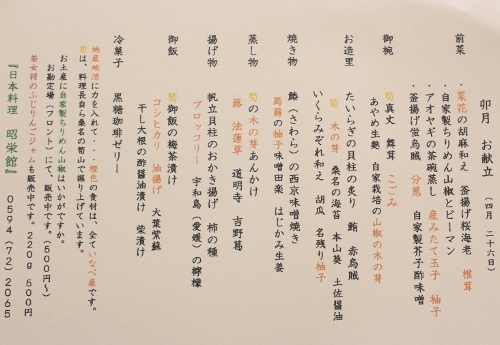 卯月 お献立 (四月 二十六日)
前菜 ・菜花の胡麻和え 釜揚げ桜海老 椎茸
・自家製ちりめん山椒とピーマン
・アオヤギの茶碗蒸し 産みたて玉子 柚子
・釜揚げ蛍烏賊 分葱 自家製芥子酢味噌
御椀 筍真丈 舞茸 こごみ
あやめ生麩 自家栽培の山椒の木の芽
お造里 たいらぎの貝柱の炙り 鮪 赤烏賊
筍 木の芽 桑名の海苔 本山葵 土佐醤油
いくらみぞれ和え 胡瓜 名残り柚子
焼き物 鰆(さわら)の西京味噌焼き
蒟蒻の柚子味噌田楽 はじかみ生姜
蒸し物 筍の木の芽あんかけ
蕗 法蓮草 道明寺 吉野葛
揚げ物 帆立貝柱のおかき揚げ 柿の種
ブロッコリー 宇和島(愛媛)の檸檬
御飯 筍御飯の梅茶漬け
コシヒカリ 油揚げ 大葉紫蘇
干し大根の酢醤油漬け 柴漬け
冷菓子 黒糖珈琲ゼリー
地産地消に力を入れて・・・橙色の食材は、全ていなべ産です。
筍は、料理長自ら桑名の筍山で掘り上げています。
お土産に自家製ちりめん山椒はいかがですか。
お勘定場(フロント)にて、販売中です。(600円~)
若女将のふじりんごジャムも販売中です。220g 500円
『日本料理 昭栄館』 0594(72)2065